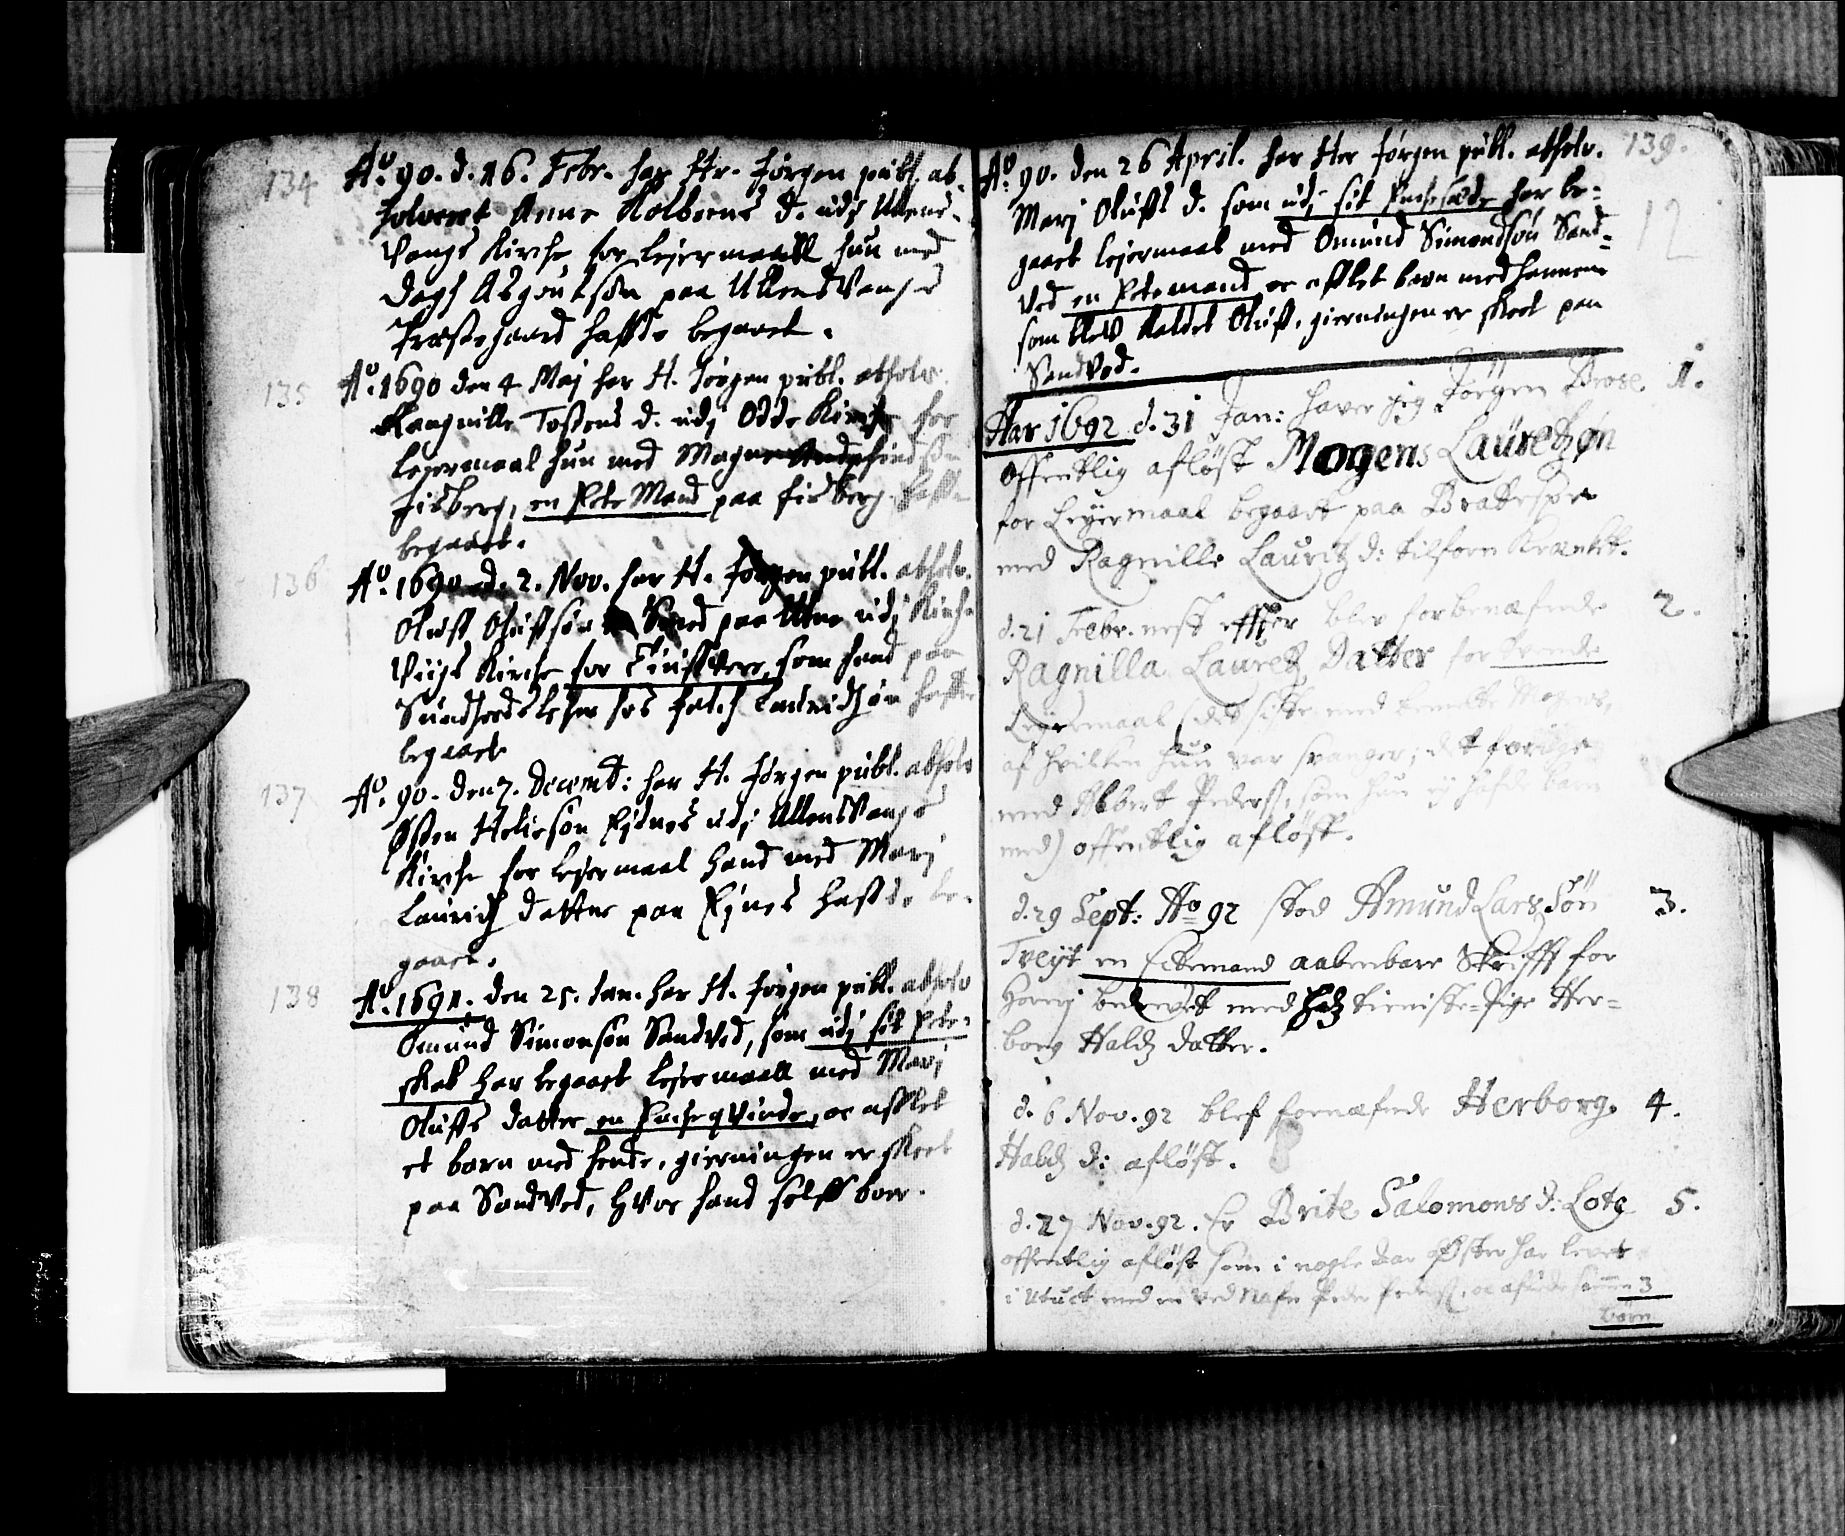 134 Aº. 90. d. 16. Febr. har Hr. Jørgen publ. ab-
solveret Anne Kolbeens d. udj Ullens-
Vangs Kirche for Lejermaall hun med
Dagf Asgoutsøn paa UllensVangs
Præstegaard haffde begaaet.
135 Aº. 1690 den 4 Maj har H. Jørgen publ. absolv.
Raagnille Tostens d. udj Odde Kirche for
Lejermaal hun med Magne
Fisberg, en Ecte Mand paa Fisberg haffde
begaaet.
136 Aº. 1690. d. 2. Nov. har H. Jørgen publ. absolv.
Oluff Oluffsøn paa Utne udj Kinsar
Viigs Kirche for som hand paa
hos Lauridsøn haffde
begaaet
137 Aº. 90. den 7. Decemb: har H. Jørgen publ. absolv
Østen Heliesøn Ejdnes udj UllensVangs
Kirche for Lejermaal hand med Marj
Laurids datter paa Ejnes haffde be-
gaaet.
138 Aº. 1691. den 25. Jan. har H. Jørgen publ. absolv
Omund Simonsøn Sandved, som udj sit Ecte-
skab har begaaet Lejermaall med Marj
Oluffs datter en Enche qvinde, oc afflet
et barn med hende, gierningen er skeet
paa Sandved, hvor hand selff boer.
Aº. 90. den 26 April. har Her Jørgen publ. absolv. 139.
Marj Oluffs d. som udj sit Enchesæde har be-
12
gaaet lejermaal med Omund Simondsøn Sand-
ved en Ectemand oc afflet barn med hannem
som blev kaldet Oluff, gierningen er skeet paa
Sandved.
Aar 1692 d. 31 Jan: haver jeg Jørgen Brose 1.
offentlig afløst Mogens Lauretzøn
for Leyermaal begaaet paa Bratespøn
med Ragnille Lauritz d: tilforn Krenket.
d. 21 Febr. nest effter blev forbenæfnde 2.
Ragnilla Lauretz Datter for tvende
Leyermaal (det sidste med bemelte Mogens,
af hvilken hun var svanger; det forrige
med Abbert Peders, som hun ey hafde barn
med) offentlig afløst.
d. 29 Sept: Aº 92 stod Amund Lars Søn 3.
Treyt en Ectemand aabenbare Skrifft for
Horerj bedrevet med hans tieniste-Pige Her-
borg Halds datter.
d. 6 Nov. 92 blef fornæfnde Herborg 4.
Halds d: afløst.
d. 27 Nov. 92. Er Brite Salomons d: Lote 5.
offentlig afløst som i nogle aar Øster har levet
i Utuct med en ved Nafn Peder Peders, oc aflude 3
børn